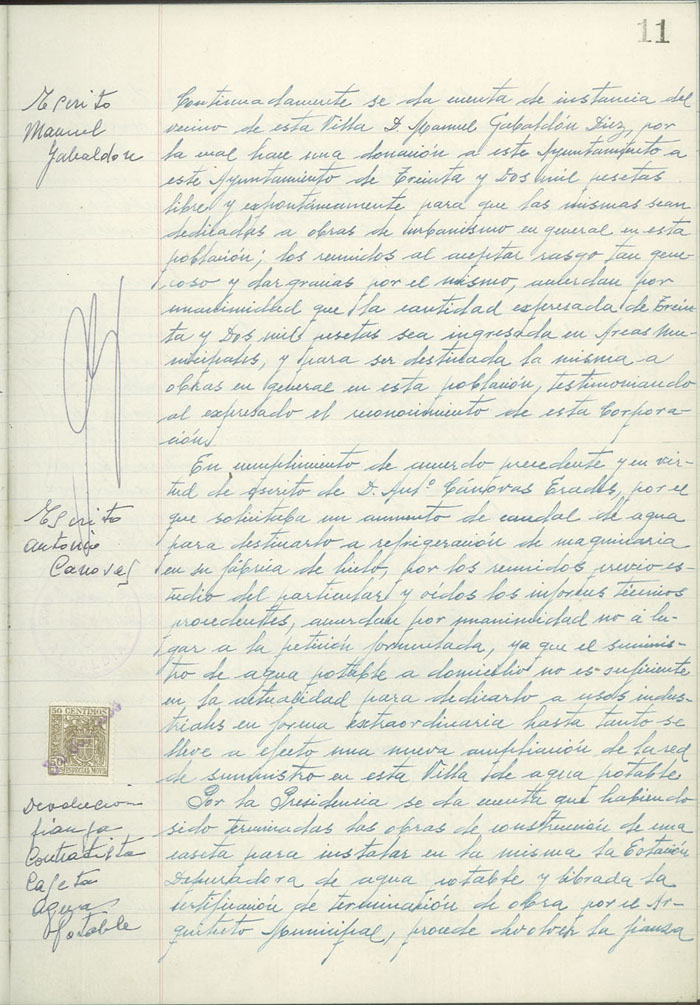 11
Escrito
Manuel
Gabaldon
Continuadamente se da cuenta de instancia del
vecino de esta Villa D. Manuel Gabaldón Diez, por
la cual hace una donación a este Ayuntamiento a
este Ayuntamiento de Treinta y Dos mil pesetas
libre y expontáneamente para que las mismas sean
dedicadas a obras de urbanismo en general en esta
población; los reunidos al aceptar rasgo tan gene-
roso y dar gracias por el mismo, acuerdan por
unanimidad que la cantidad expresada de Trein-
ta y Dos mil pesetas sea ingresada en Arcas Mu-
nicipales, y para ser destinada la misma a
obras en general en esta población, testimoniando
al expresado el reconocimiento de esta Corpora-
ción.
Escrito
Antonio
Canovas
En cumplimiento de acuerdo precedente y en vir-
tud de escrito de D. Antº Cánovas Erades, por el
que solicitaba un aumento de caudal de agua
para destinarlo a refrigeración de maquinaria
en su fábrica de hielo, por los reunidos previo es-
tudio del particular y oídos los informes técnicos
procedentes, acuerdan por unanimidad no á lu-
gar a la petición formulada, ya que el suminis-
tro de agua potable a domicilio no es suficiente
en la actualidad para dedicarlo a usos indus-
triales en forma extraordinaria hasta tanto se
lleve a efecto una nueva ampliación de la red
de suministro en esta Villa de agua potable
50 CENTIMOS
ESPECIAL MOVIL
Devolucion
fianza
Contratista
Caseta
Aguas
Potable
Por la Presidencia se da cuenta que habiendo
sido terminadas las obras de construcción de una
caseta para instalar en la misma la Estación
Depuradora de agua potable y librada la
certificación de terminación de obra por el Ar-
quitecto Municipal, procede devolver la fianza